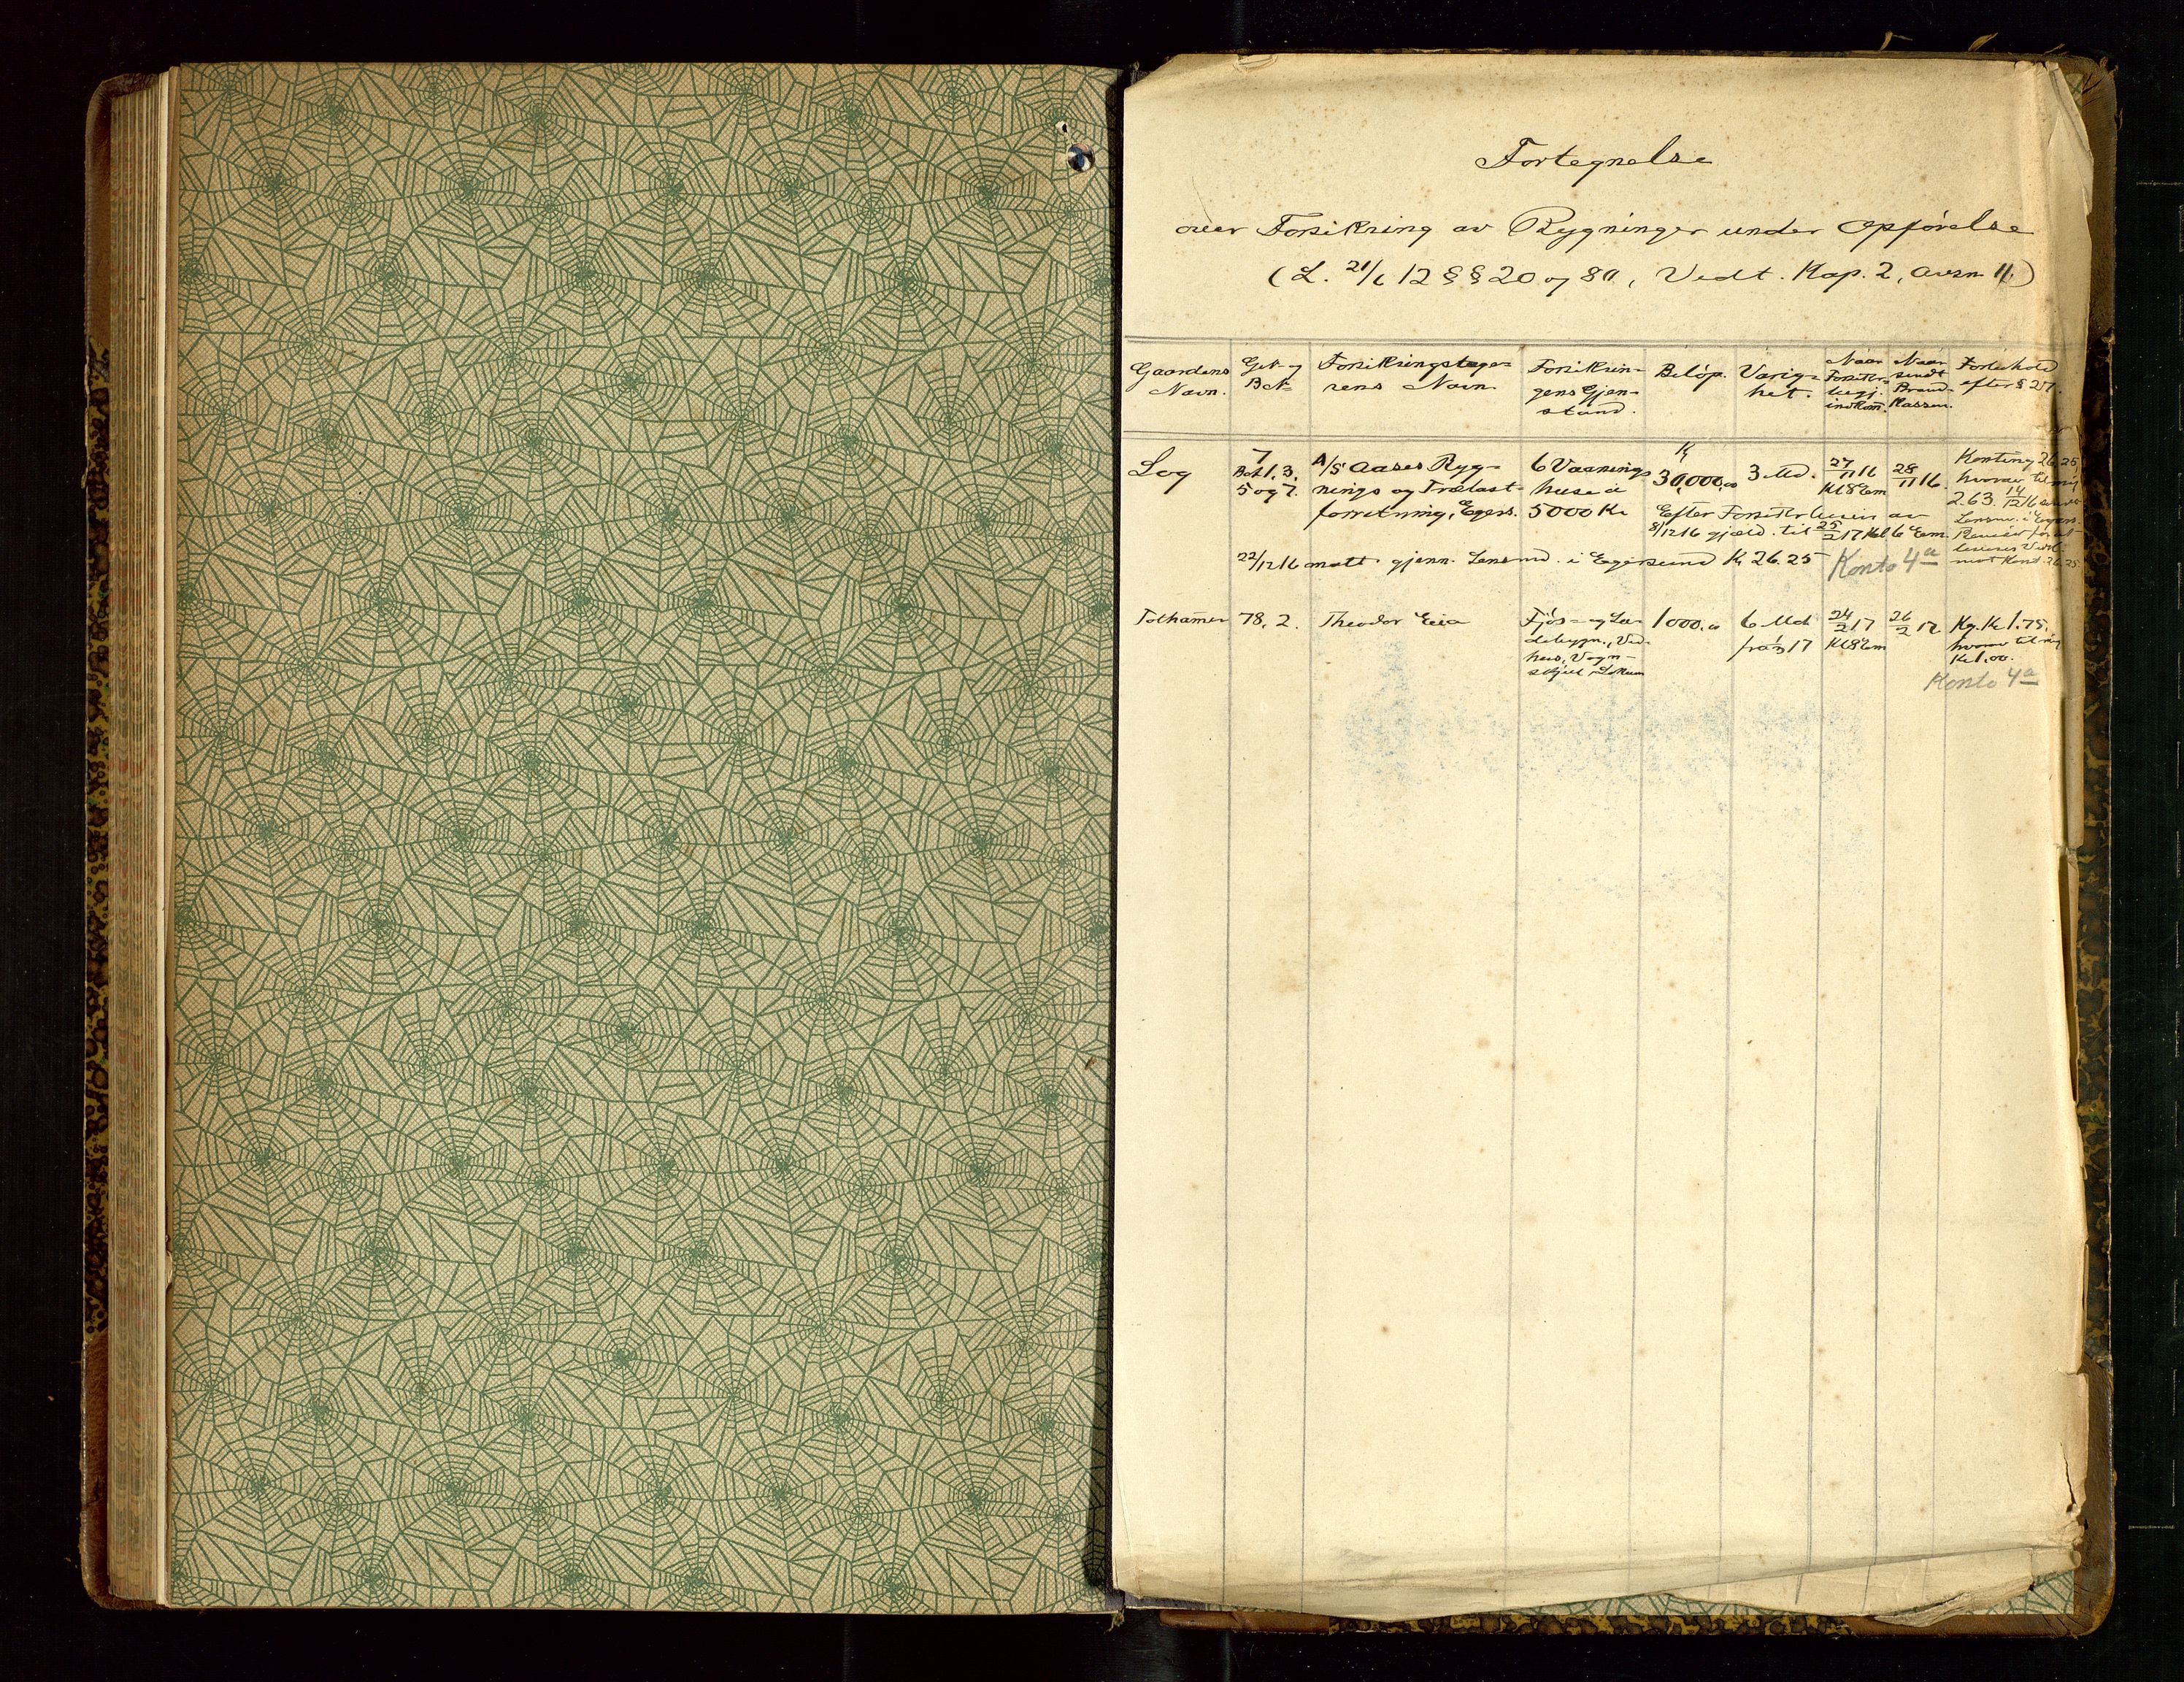 Fortegnelse
over Forsikring av Bygninger under Opførelse
(L. 21/6 12 §§ 20 og 80, Vedt. Kap. 2, avsn 11.)
Gaardens Navn.
Gnt og Bnt
Forsikringstagerens Navn.
Forsikringens Gjenstand.
Beløp.
Varighet.
Naar Forsikr. begj. indkom.
Naar sendt Brandkassen.
Forbehold efter § 27.
Log
7 Bnt 1, 3, 5 og 7.
A/S Aases Bygnings og Trælastforretning, Egers.
6 Vaaningshuse à 5000 Kr
Kr 30,000,00
3 Md.
27/11 16 Kl 8 Em
28/11 16.
Konting 26,25, hvorav til mig 2.63. 14/12 16 Lensm. i Egers.
Efter Forsikr.beviis av 8/12 16 gjæld. til 25/2 17 Kl 6 Em.
22/12 16 mott. gjenn. Lensmd. i Egersund Kr 26.25
Konto 4a
Tothamer
78, 2.
Theodor Eeia
Fjøs- og Ladebygn., Vedhus, Vognskjul, Lokum
1000,00
6 Md fra 1/3 17
24/2 17 Kl 8 Em
26/2 17.
Kg. Kr 1.75, hvorav til mig Kr 1,00.
Konto 4a